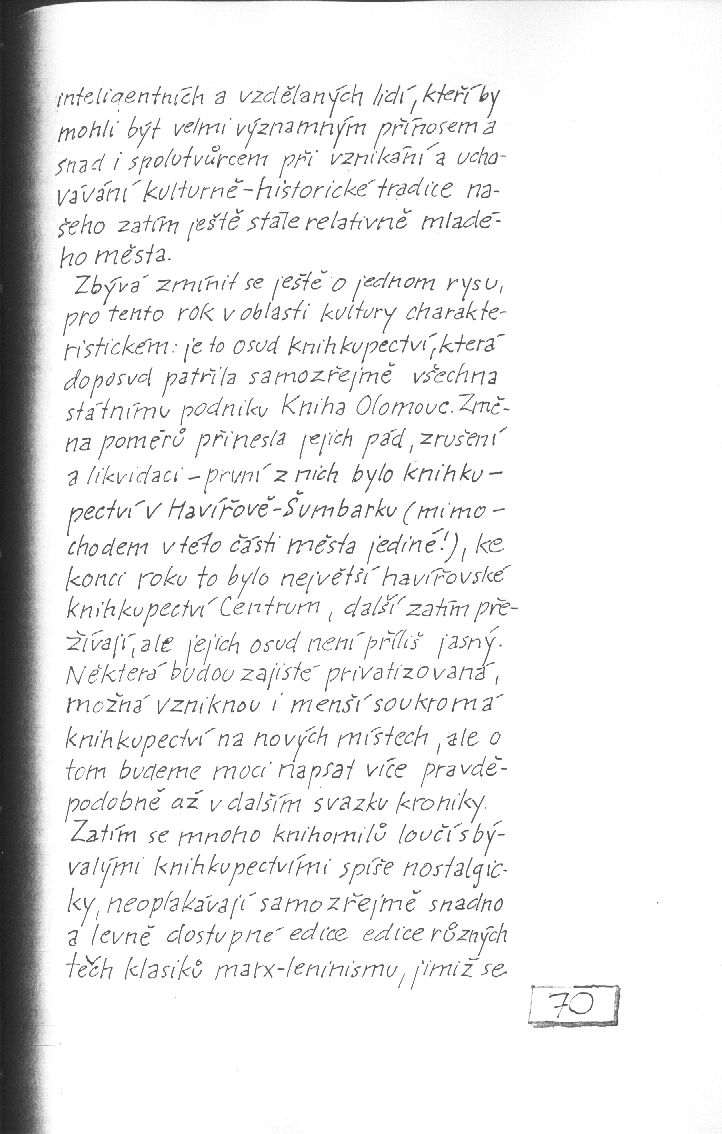 inteligentních a vzdělaných lidí, kteří by
mohli být velmi významným přínosem a
snad i spolutvůrcem při vznikání a ucho-
vávání kulturně-historické tradice na-
šeho zatím ještě stále relativně mladé-
ho města.
Zbývá zmínit se ještě o jednom rysu,
pro tento rok v oblasti kultury charakte-
ristickém: je to osud knihkupectví, která
doposud patřila samozřejmě všechna
státnímu podniku Kniha Olomouc. Změ-
na poměrů přinesla jejich pád, zrušení
a likvidaci - první z nich bylo knihku-
pectví v Havířově-Šumbarku (mimo-
chodem v této části města jediné!), ke
konci roku to bylo největší havířovské
knihkupectví Centrum, další zatím pře-
žívají, ale jejich osud není příliš jasný.
Některá budou zajisté privatizovaná,
možná vzniknou i menší soukromá
knihkupectví na nových místech, ale o
tom budeme moci napsat více pravdě-
podobně až v dalším svazku kroniky.
Zatím se mnoho knihomilů loučí s bý-
valými knihkupectvími spíše nostalgic-
ky, neoplakávají samozřejmě snadno
a levně dostupné edice edice různých
těch klasiků marx-leninismu, jimiž se
70